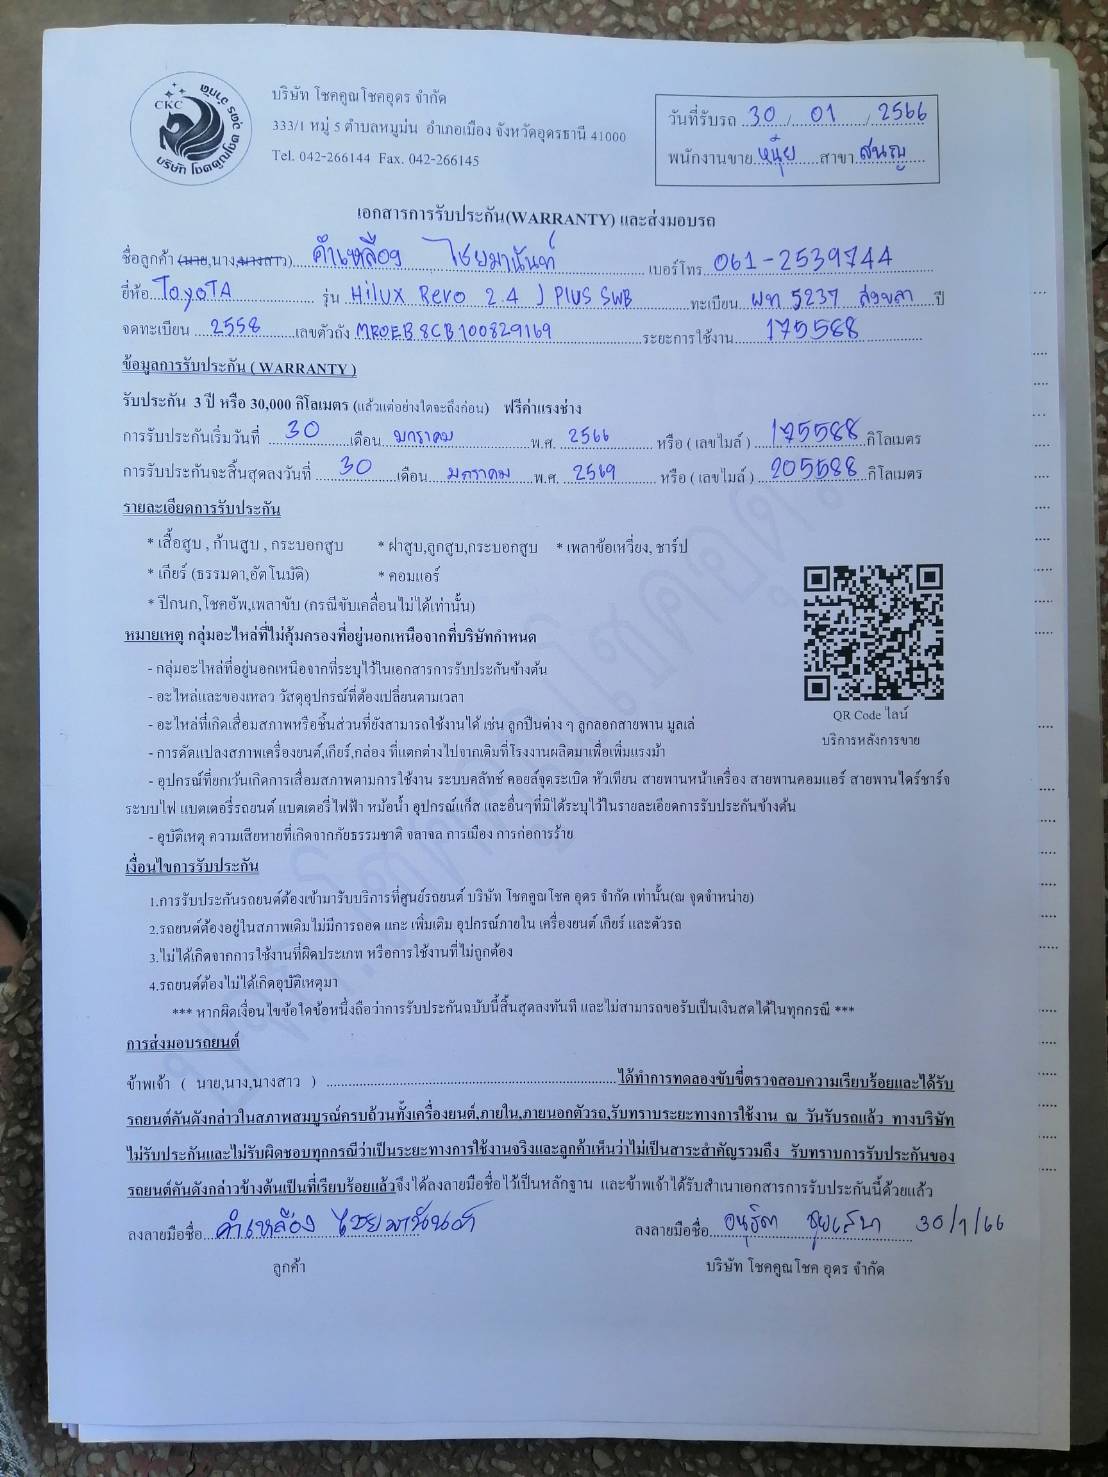 CKC
บริษัท โชคคูณโชค อุดร จำกัด
บริษัท โชคคูณโชคอุดร จำกัด
333/1 หมู่ 5 ตำบลหมูม่น อำเภอเมือง จังหวัดอุดรธานี 41000
Tel. 042-266144 Fax. 042-266145
วันที่รับรถ 30 / 01 / 2566
พนักงานขาย หนุ่ย สาขา สนญ
เอกสารการรับประกัน(WARRANTY) และส่งมอบรถ
ชื่อลูกค้า (นาย,นาง,นางสาว) คำเหลือง ไชยมานันท์ เบอร์โทร 061-2539744
ยี่ห้อ ToyoTA รุ่น Hilux Revo 2.4 J PLUS SWB ทะเบียน ผท 5237 สงขลา ปี
จดทะเบียน 2558 เลขตัวถัง MROEB8CB100829169 ระยะการใช้งาน 175588
ข้อมูลการรับประกัน ( WARRANTY )
รับประกัน 3 ปี หรือ 30,000 กิโลเมตร (แล้วแต่อย่างใดจะถึงก่อน) ฟรีค่าแรงช่าง
การรับประกันเริ่มวันที่ 30 เดือน มกราคม พ.ศ. 2566 หรือ ( เลขไมล์ ) 175588 กิโลเมตร
การรับประกันจะสิ้นสุดลงวันที่ 30 เดือน มกราคม พ.ศ. 2569 หรือ ( เลขไมล์ ) 205588 กิโลเมตร
รายละเอียดการรับประกัน
* เสื้อสูบ , ก้านสูบ , กระบอกสูบ * ฝาสูบ,ลูกสูบ,กระบอกสูบ * เพลาข้อเหวี่ยง, ชาร์ป
* เกียร์ (ธรรมดา,อัตโนมัติ) * คอมแอร์
* ปีกนก,โชคอัพ,เพลาขับ (กรณีขับเคลื่อนไม่ได้เท่านั้น)
หมายเหตุ กลุ่มอะไหล่ที่ไม่คุ้มครองที่อยู่นอกเหนือจากที่บริษัทกำหนด
- กลุ่มอะไหล่ที่อยู่นอกเหนือจากที่ระบุไว้ในเอกสารการรับประกันข้างต้น
- อะไหล่และของเหลว วัสดุอุปกรณ์ที่ต้องเปลี่ยนตามเวลา
- อะไหล่ที่เกิดเสื่อมสภาพหรือชิ้นส่วนที่ยังสามารถใช้งานได้ เช่น ลูกปืนต่าง ๆ ลูกลอกสายพาน มูลเล่
QR Code ไลน์
บริการหลังการขาย
- การดัดแปลงสภาพเครื่องยนต์,เกียร์,กล่อง ที่แตกต่างไปจากเดิมที่โรงงานผลิตมาเพื่อเพิ่มแรงม้า
- อุปกรณ์ที่ยกเว้นเกิดการเสื่อมสภาพตามการใช้งาน ระบบคลัทช์ คอยล์จุดระเบิด หัวเทียน สายพานหน้าเครื่อง สายพานคอมแอร์ สายพานไดร์ชาร์จ
ระบบไฟ แบตเตอรี่รถยนต์ แบตเตอรี่ไฟฟ้า หม้อน้ำ อุปกรณ์แก๊ส และอื่นๆที่มิได้ระบุไว้ในรายละเอียดการรับประกันข้างต้น
- อุบัติเหตุ ความเสียหายที่เกิดจากภัยธรรมชาติ จลาจล การเมือง การก่อการร้าย
เงื่อนไขการรับประกัน
1.การรับประกันรถยนต์ต้องเข้ามารับบริการที่ศูนย์รถยนต์ บริษัท โชคคูณโชค อุดร จำกัด เท่านั้น(ณ จุดจำหน่าย)
2.รถยนต์ต้องอยู่ในสภาพเดิมไม่มีการถอด แกะ เพิ่มเติม อุปกรณ์ภายใน เครื่องยนต์ เกียร์ และตัวรถ
3.ไม่ได้เกิดจากการใช้งานที่ผิดประเภท หรือการใช้งานที่ไม่ถูกต้อง
4.รถยนต์ต้องไม่ได้เกิดอุบัติเหตุมา
*** หากผิดเงื่อนไขข้อใดข้อหนึ่งถือว่าการรับประกันฉบับนี้สิ้นสุดลงทันที และไม่สามารถขอรับเป็นเงินสดได้ในทุกกรณี ***
การส่งมอบรถยนต์
ข้าพเจ้า ( นาย,นาง,นางสาว ) ได้ทำการทดลองขับขี่ตรวจสอบความเรียบร้อยและได้รับ
รถยนต์คันดังกล่าวในสภาพสมบูรณ์ครบถ้วนทั้งเครื่องยนต์,ภายใน,ภายนอกตัวรถ,รับทราบระยะทางการใช้งาน ณ วันรับรถแล้ว ทางบริษัท
ไม่รับประกันและไม่รับผิดชอบทุกกรณีว่าเป็นระยะทางการใช้งานจริงและลูกค้าเห็นว่าไม่เป็นสาระสำคัญรวมถึง รับทราบการรับประกันของ
รถยนต์คันดังกล่าวข้างต้นเป็นที่เรียบร้อยแล้วจึงได้ลงลายมือชื่อไว้เป็นหลักฐาน และข้าพเจ้าได้รับสำเนาเอกสารการรับประกันนี้ด้วยแล้ว
ลงลายมือชื่อ คำเหลือง ไชยมานันท์ ลงลายมือชื่อ 30/1/66
ลูกค้า บริษัท โชคคูณโชค อุดร จำกัด